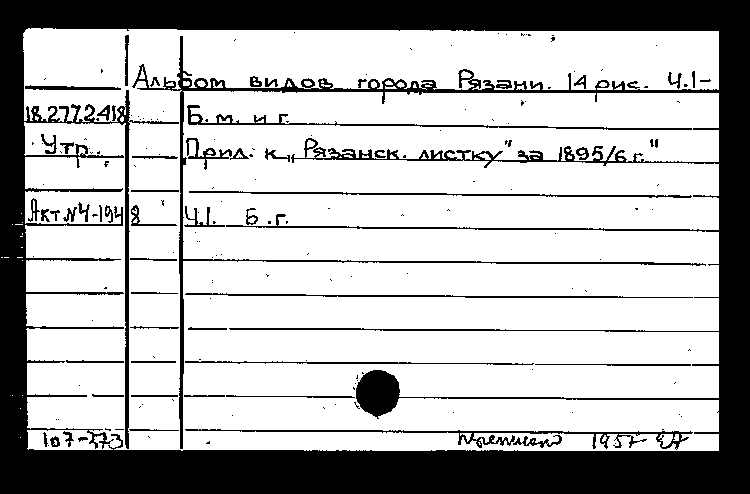 Альбом видов города Рязани. 14 рис. Ч.1-
18.277.2.418 Б. м. и г.
Утр. Прил. к „Рязанск. листку" за 1895/6 г."
Акт №4-1948 Ч.1. Б. г.
107-373 1957